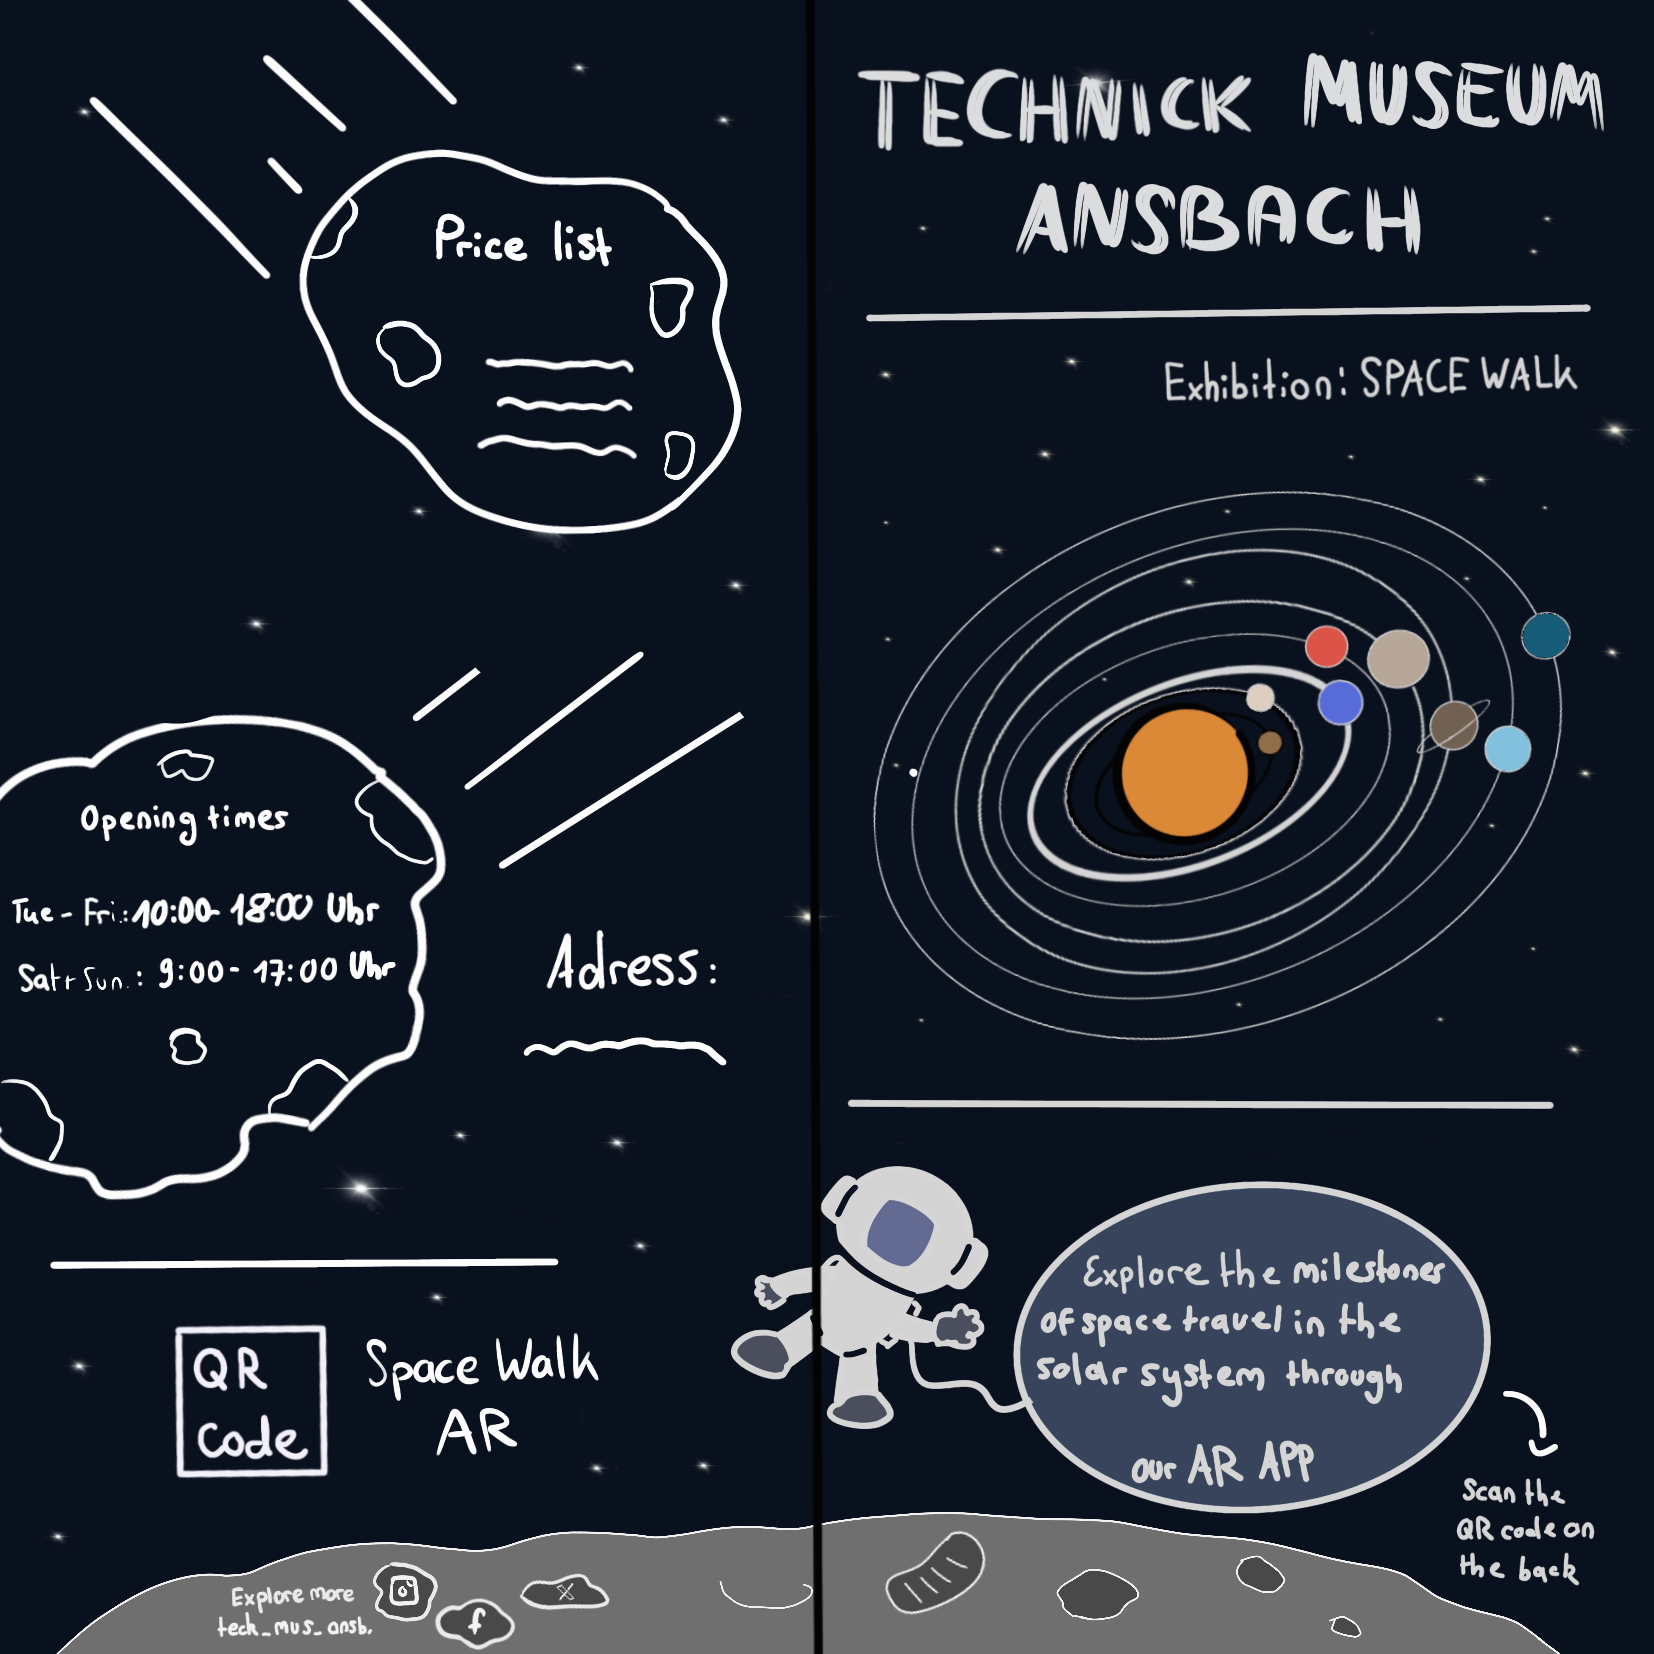 Price list
Opening times
Tue - Fri.: 10:00 - 18:00 Uhr
Sat + Sun.: 9:00 - 17:00 Uhr
Adress:
QR
Code
Space Walk
AR
Explore more
teck_mus_ansb.
f
X
TECHNICK MUSEUM
ANSBACH
Exhibition: SPACE WALK
Explore the milestones
of space travel in the
solar system through
our AR APP
Scan the
QR code on
the back